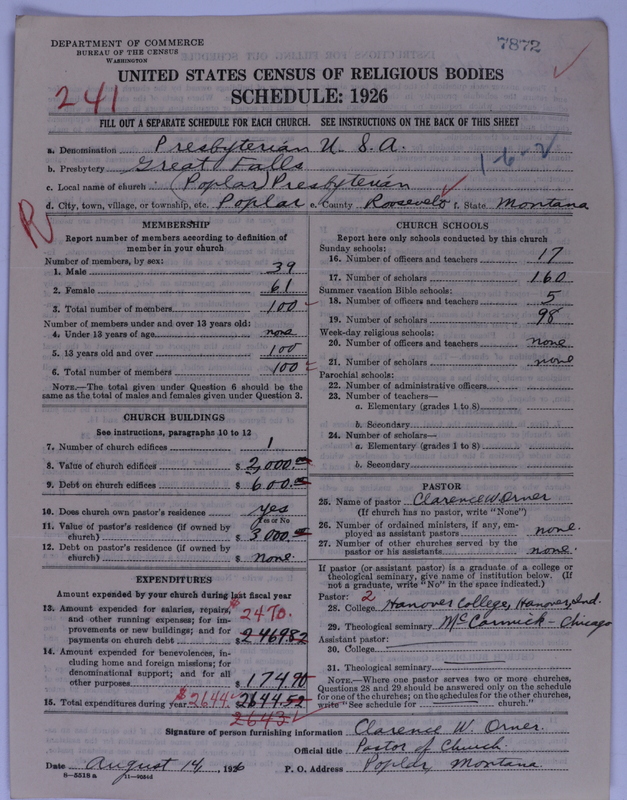 DEPARTMENT OF COMMERCE
BUREAU OF THE CENSUS
WASHINGTON
7872
UNITED STATES CENSUS OF RELIGIOUS BODIES
241
SCHEDULE: 1926
FILL OUT A SEPARATE SCHEDULE FOR EACH CHURCH. SEE INSTRUCTIONS ON THE BACK OF THIS SHEET
a. Denomination Presbyterian U. S. A.
b. Presbytery Great Falls 1-6-2
c. Local name of church (Poplar) Presbyterian
d. City, town, village, or township, etc. Poplar e. County Roosevelt f. State Montana
R
MEMBERSHIP
Report number of members according to definition of
member in your church
Number of members, by sex:
1. Male 39
2. Female 61
3. Total number of members 100
Number of members under and over 13 years old:
4. Under 13 years of age none
5. 13 years old and over 100
6. Total number of members 100
NOTE.—The total given under Question 6 should be the
same as the total of males and females given under Question 3.
CHURCH BUILDINGS
See instructions, paragraphs 10 to 12
7. Number of church edifices 1
8. Value of church edifices $ 2,000.00
9. Debt on church edifices $ 600.00
10. Does church own pastor's residence? yes
Yes or No
11. Value of pastor's residence (if owned by
church) $ 3,000.00
12. Debt on pastor's residence (if owned by
church) $ none
EXPENDITURES
Amount expended by your church during last fiscal year
13. Amount expended for salaries, repairs, $
and other running expenses; for im- 2470.
provements or new buildings; and for
payments on church debt $ 2469.82
14. Amount expended for benevolences, in-
cluding home and foreign missions; for
denominational support; and for all
other purposes $ 174.90
15. Total expenditures during year $2644. 2644.52
2643
CHURCH SCHOOLS
Report here only schools conducted by this church
Sunday schools:
16. Number of officers and teachers 17
17. Number of scholars 160
Summer vacation Bible schools:
18. Number of officers and teachers 5
19. Number of scholars 98
Week-day religious schools:
20. Number of officers and teachers none
21. Number of scholars none
Parochial schools:
22. Number of administrative officers
23. Number of teachers—
a. Elementary (grades 1 to 8)
b. Secondary
24. Number of scholars—
a. Elementary (grades 1 to 8)
b. Secondary
PASTOR
25. Name of pastor Clarence W. Orner
(If church has no pastor, write "None")
26. Number of ordained ministers, if any, em-
ployed as assistant pastors none.
27. Number of other churches served by the
pastor or his assistants none.
If pastor (or assistant pastor) is a graduate of a college or
theological seminary, give name of institution below. (If
not a graduate, write "No" in the space indicated.)
Pastor: 2
28. College Hanover College, Hanover, Ind.
29. Theological seminary McCormick - Chicago
Assistant pastor:
30. College
31. Theological seminary
NOTE.—Where one pastor serves two or more churches,
Questions 28 and 29 should be answered only on the schedule
for one of the churches; on the schedules for the other churches,
write "See schedule for church."
Signature of person furnishing information Clarence W. Orner.
Official title Pastor of Church.
Date August 14, 1926 P. O. Address Poplar, Montana.
8—5518 a